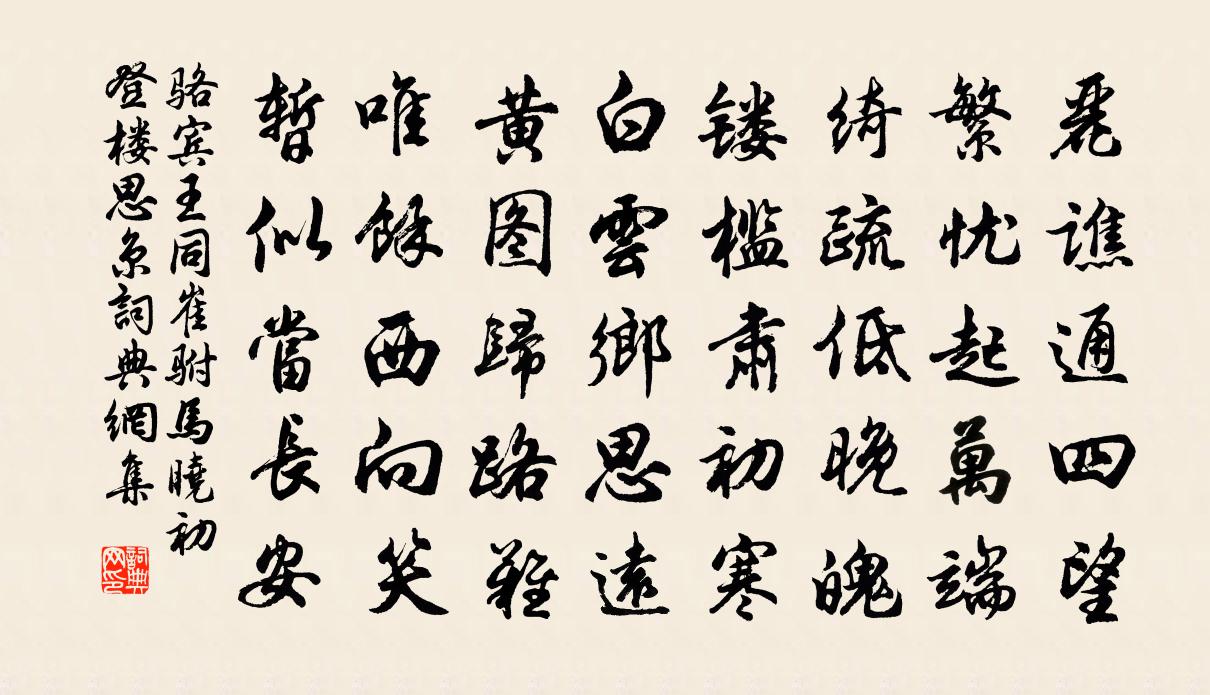 麗譙通四望
繁忧起萬端
綺疏低晚魄
镂檻肅初寒
白雲鄉思遠
黄图歸路難
唯餘西向笑
暫似當長安
骆宾王同崔駙馬曉初
登楼思京詞典網集
詞典网印